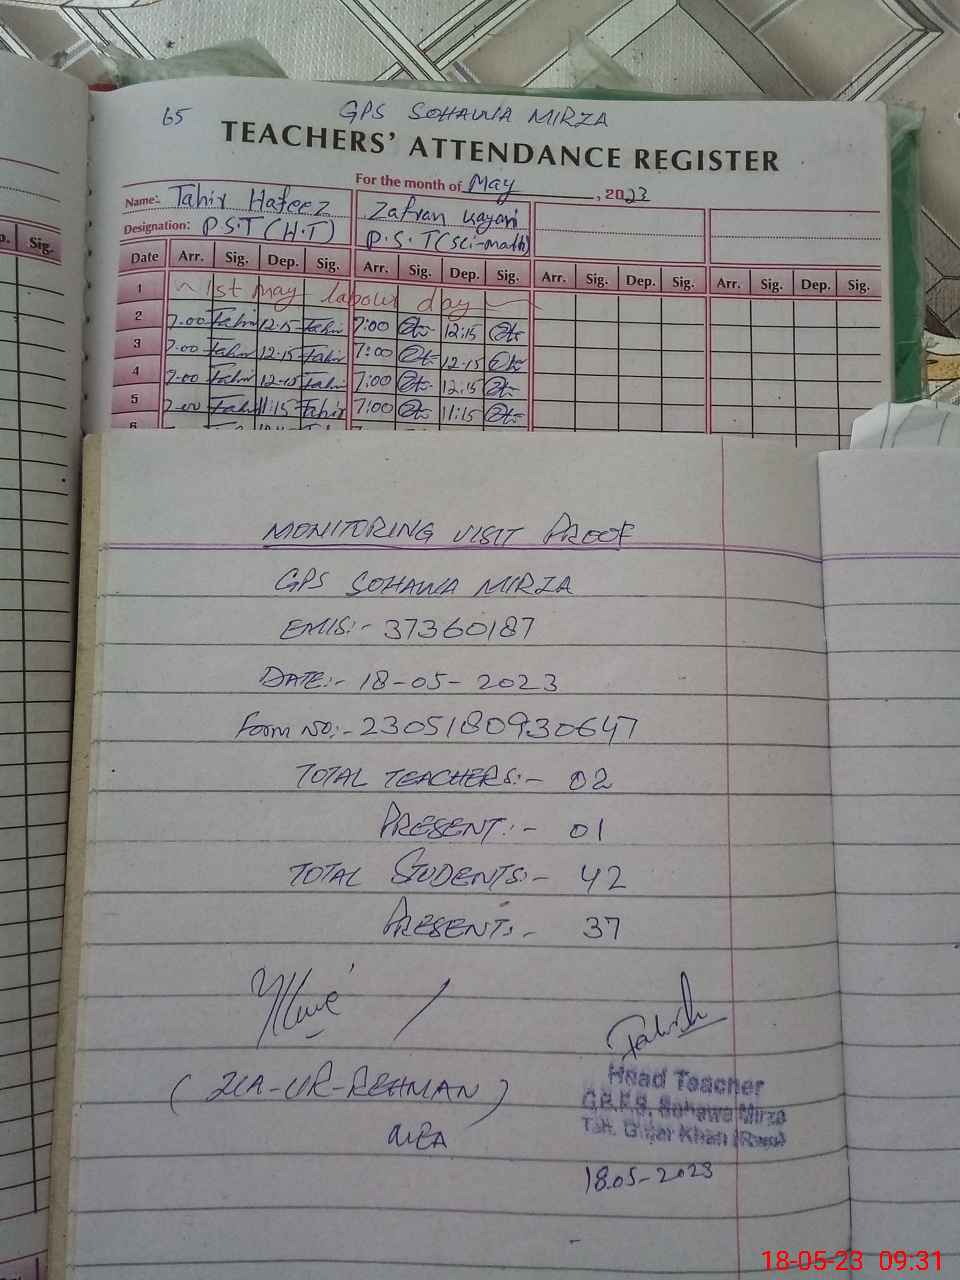 65 GPS SOHAWA MIRZA
TEACHERS' ATTENDANCE REGISTER
For the month of May, 2023
Name:- Tahir Hafeez Zafran kayani
Designation: P.S.T (H.T) P.S.T (Sci-math)
Sig.
Date Arr. Sig. Dep. Sig. Arr. Sig. Dep. Sig. Arr. Sig. Dep. Sig. Arr. Sig. Dep. Sig.
1 1st May labour day
2 7.00 Tahir 12.15 Tahir 7:00 12:15
3 7.00 Tahir 12.15 Tahir 7:00 12.15
4 7.00 Tahir 12.15 Tahir 7:00 12:15
5 7.00 Tahir 11:15 Tahir 7:00 11:15
6
MONITORING VISIT PROOF
GPS SOHAWA MIRZA
EMIS:- 37360187
DATE:- 18-05-2023
Form NO:- 2305180930647
TOTAL TEACHERS:- 02
PRESENT:- 01
TOTAL STUDENTS:- 42
PRESENT:- 37
(ZIA-UR-REHMAN)
MEA
Head Teacher
Sohawa Mirza
Teh. Gujar Khan
18.05-2023
18-05-23 09:31